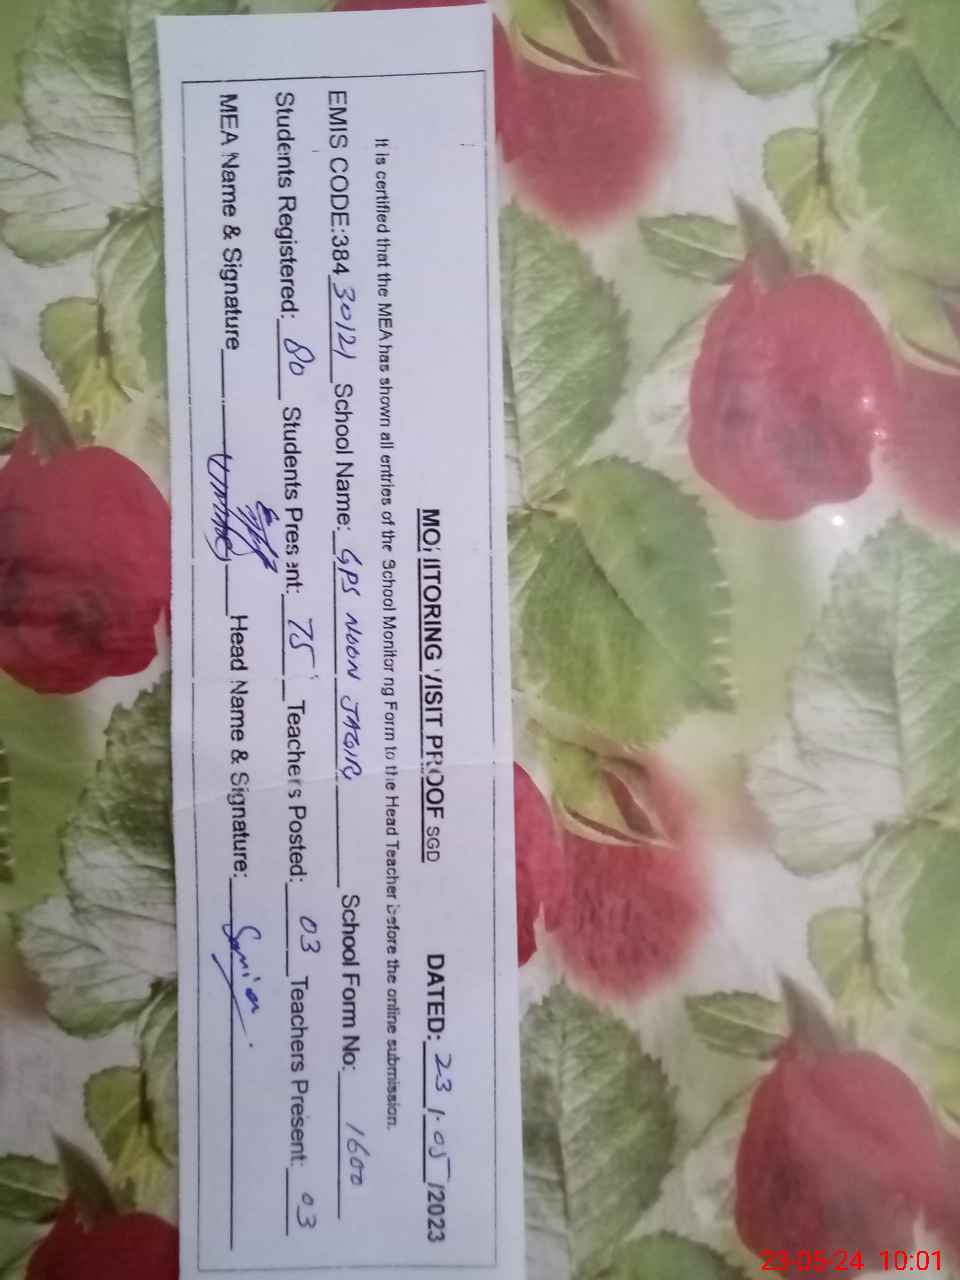 MONITORING VISIT PROOF SGD DATED: 23/05/2023
It is certified that the MEA has shown all entries of the School Monitoring Form to the Head Teacher before the online submission.
EMIS CODE:384 30121 School Name: GPS NOON JAGIR School Form No: 1600
Students Registered: 80 Students Present: 75 Teachers Posted: 03 Teachers Present: 03
MEA Name & Signature Head Name & Signature:
23-05-24 10:01